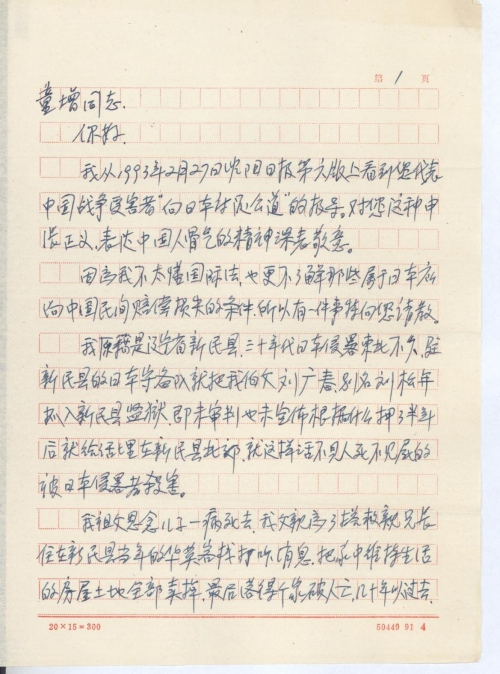 第 1 页
童增同志.
你好.
我从1993年2月27日沈阳日报第六版上看到您代表
中国战争受害者"向日本讨还公道"的报导。对您这种申
张正义,表达中国人骨气的精神深表敬意。
因为我不太懂国际法,也更不了解那些属于日本应
向中国民间赔偿损失的条件,所以有一件事特向您请教。
我原籍是辽宁省新民县,三十年代日本侵略东北不久,驻
新民县的日本守备队就把我伯父刘广春,别名刘松年
抓入新民县监狱,即未审判也未宣佈根据什么押了半年
后就给活埋在新民县北部,就这样活不见人死不见尸的
被日本侵略者杀害。
我祖父思念儿子一病死去,我父亲为了搭救亲兄长
住在新民县当年的华英客栈打听消息,把家中维持生活
的房屋土地全部卖掉,最后落得个家破人亡,几十年以过去,
20×15=300
60449 91 4